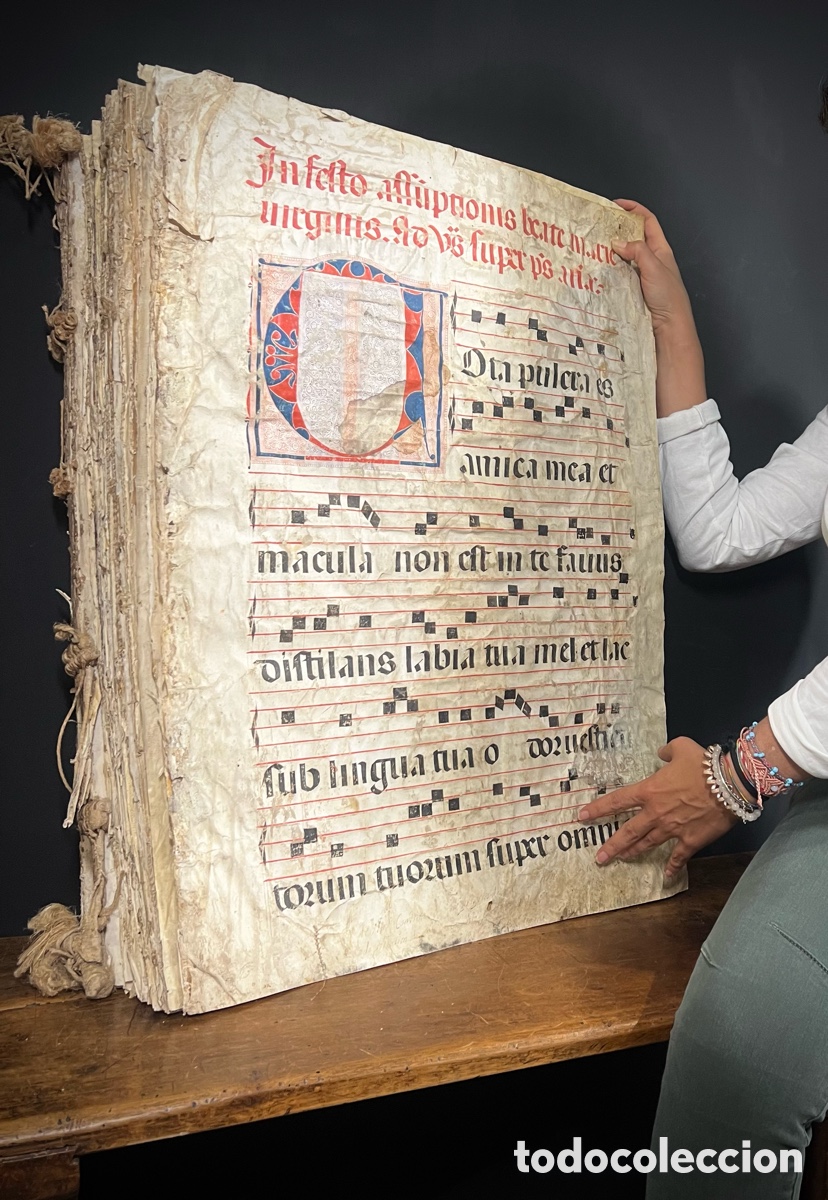 In festo assuptionis beate marie
uirginis. Ad Vs̃ super ps̃ aña:
Ota pulcra es
amica mea et
macula non est in te fauus
distilans labia tua mel et lac
sub lingua tua o
torum tuorum super omni
todocoleccion